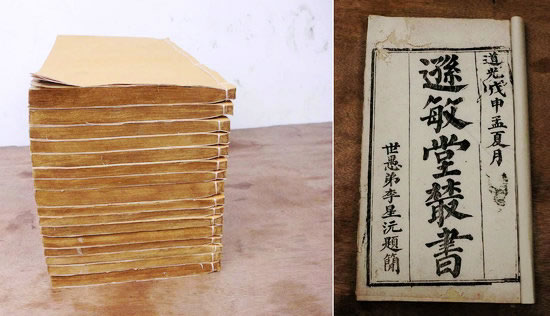 道光戊申孟夏月
遜敏堂叢書
世愚弟李星沅題簡